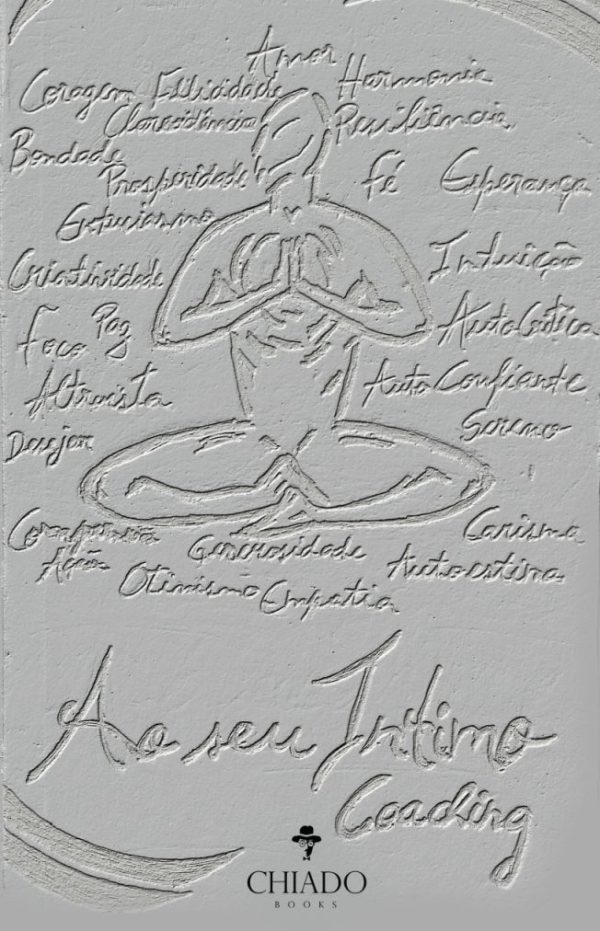 Amor
Coragem Felicidade Harmonia
Clarevidência Resiliência
Bondade
Prosperidade Fé Esperança
Entusiasmo
Intuição
Criatividade
Foco Paz AutoCrítica
Altruista AutoConfiante
Desejar Sereno
Carisma
Ação Generosidade Autoestima
Otimismo Empatia
Ao seu Intimo
Coaching
CHIADO
BOOKS